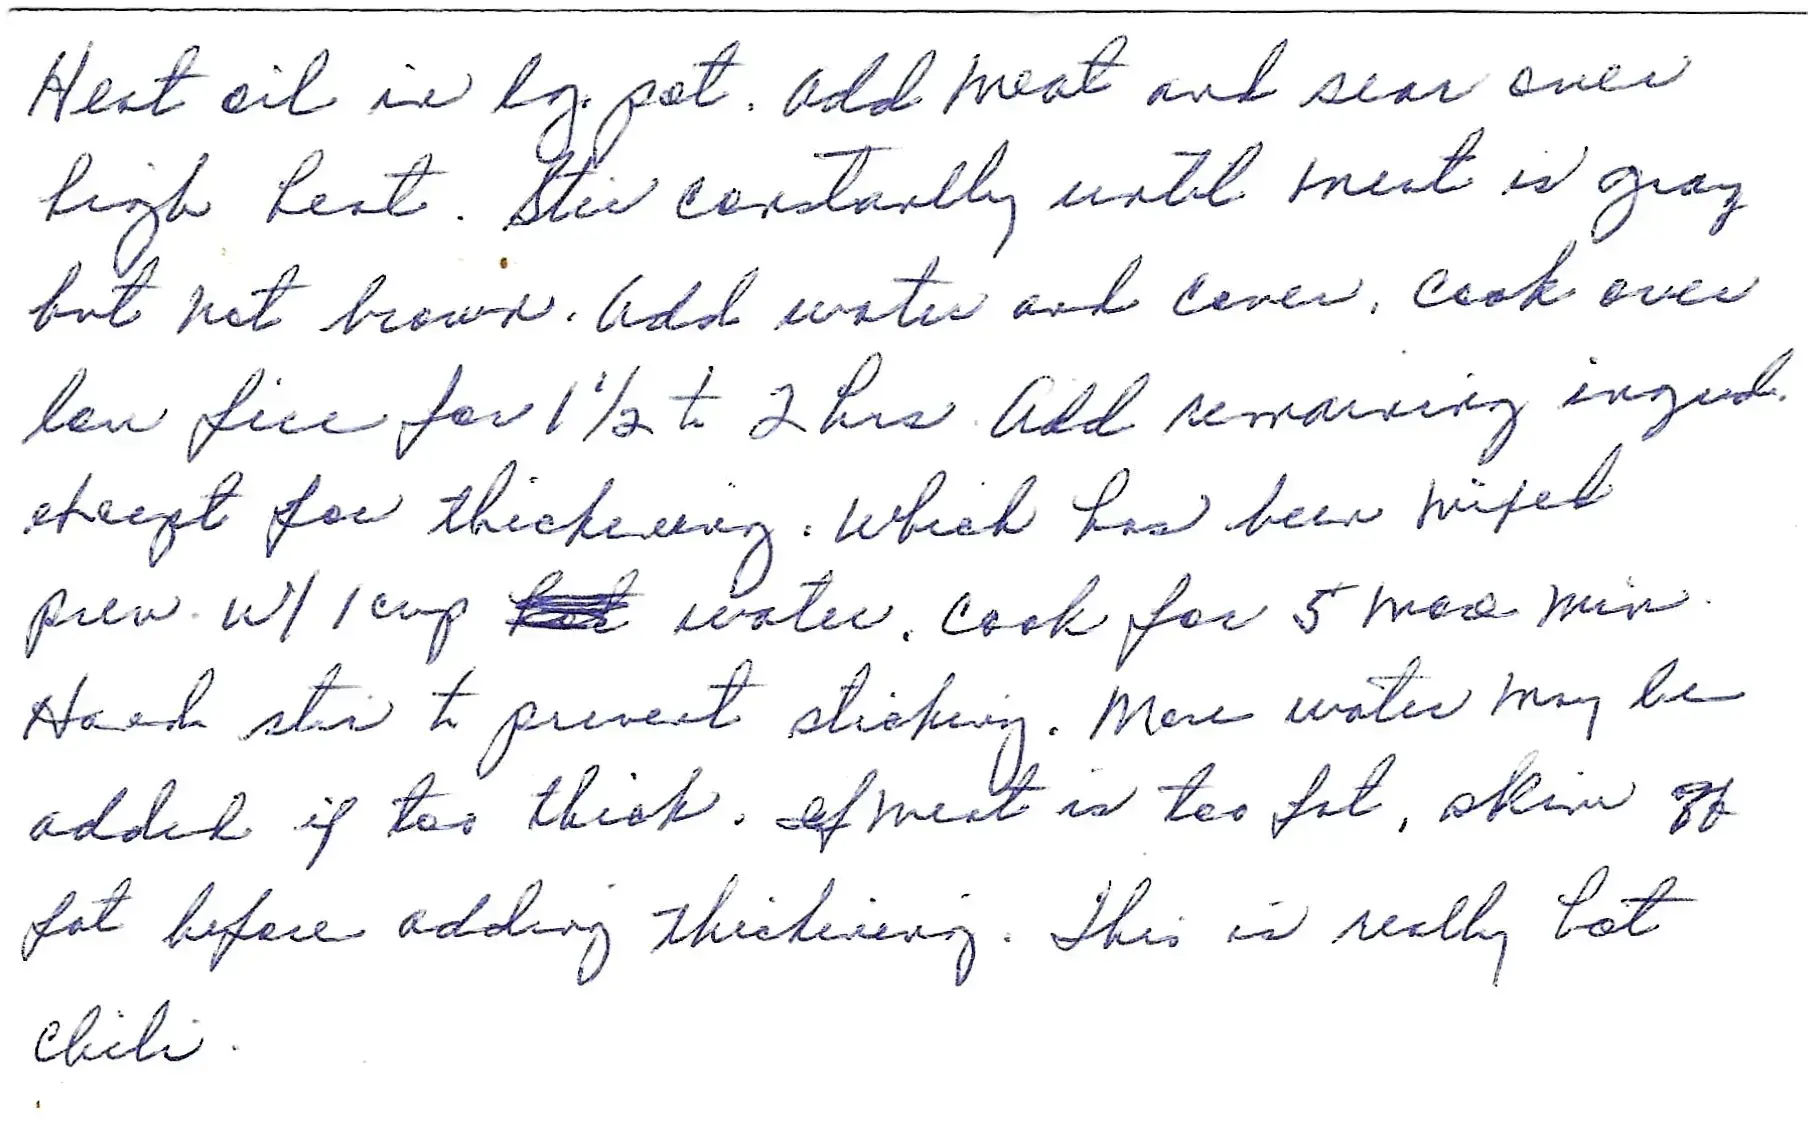 Heat oil in lg. pot. Add meat and sear over
high heat. Stir constantly until meat is gray
but not brown. Add water and cover. Cook over
low fire for 1 1/2 to 2 hrs. Add remaining ingred.
except for thickening. Which has been mixed
prev. w/ 1 cup water. Cook for 5 more min.
stir to prevent sticking. More water may be
added if too thick. If meat is too fat, skim off
fat before adding thickening. This is really hot
chili.